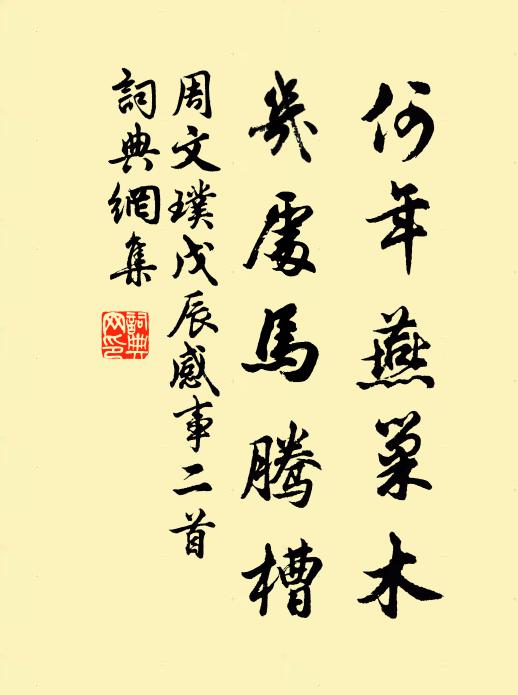 何年燕巢木
幾處馬騰槽
周文璞戊辰感事二首
詞典網集
詞典网印